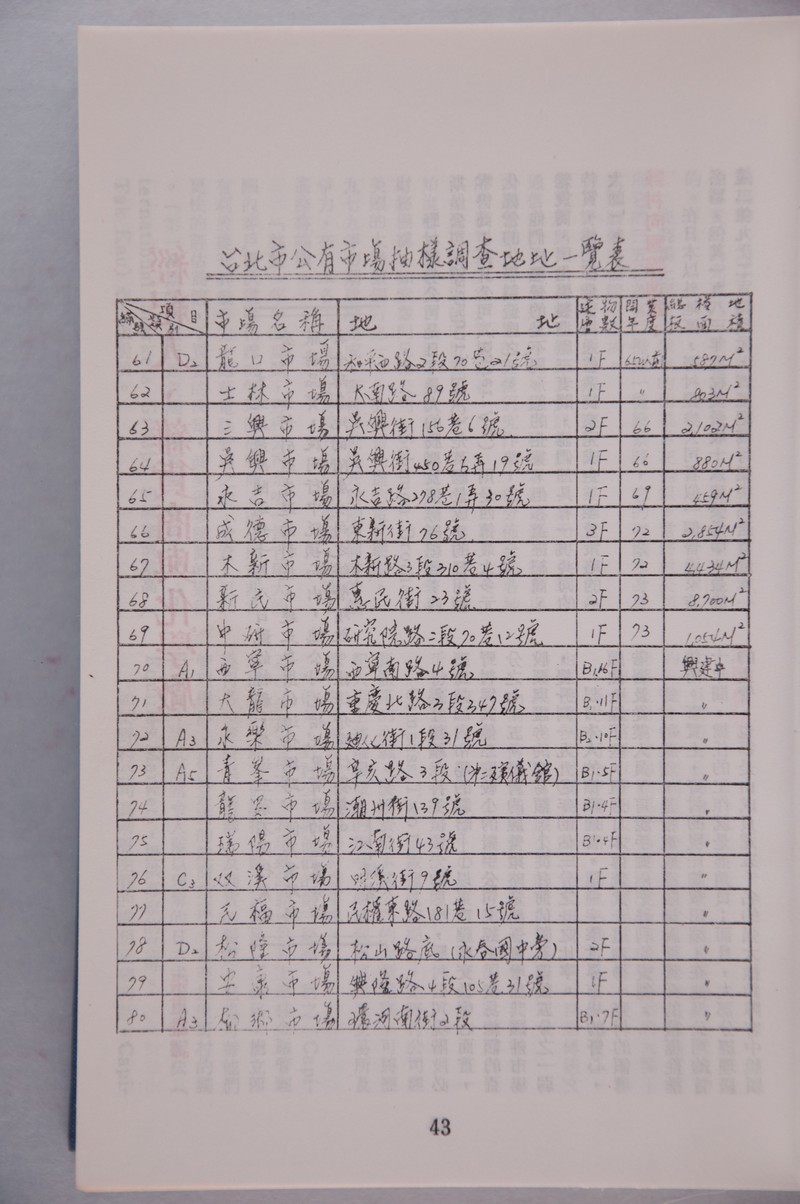 台北市公有市場抽樣調查地地一覽表
項目 類別 編號 市場名稱 地 地 建物層數 開業年度 樓地板面積
61 D2 龍口市場 和平西路2段70巷21號 1F 587M²
62 士林市場 大南路89號 1F 〃 803M²
63 三興市場 吳興街156巷6號 2F 66 2,102M²
64 吳興市場 吳興街450巷5弄19號 1F 66 880M²
65 永吉市場 永吉路278巷1弄30號 1F 69 459M²
66 成德市場 東新街76號 3F 72 2,854M²
67 木新市場 木新路3段310巷4號 1F 72 4,434M²
68 新民市場 惠民街23號 2F 73 8,700M²
69 中研市場 研究院路二段70巷12號 1F 73
70 A1 西寧市場 西寧南路4號 興建中
71 大龍市場 重慶北路3段347號 〃
72 A3 永樂市場 迪化街1段31號 〃
73 A5 青峯市場 辛亥路3段(第二殯儀館) B1.5F 〃
74 龍泉市場 潮州街139號 B1.4F 〃
75 瑞陽市場 江南街43號 B1.4F 〃
76 C3 双溪市場 明溪街9號 1F 〃
77 元福市場 民權東路181巷15號 〃
78 D2 松隆市場 松山路底(永春國中旁) 2F 〃
79 安康市場 興隆路4段105巷31號 1F 〃
80 A3 市場 環河南街2段 B1.7F 〃
43